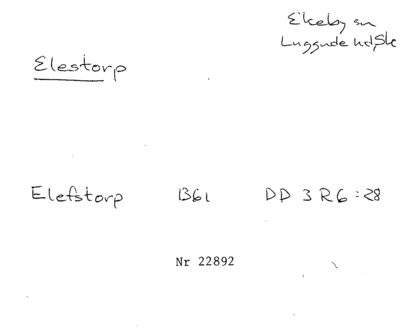 Ekeby sn
Luggude hd, Sk
Elestorp
Elefstorp 1361 DD 3 R 6:28
Nr 22892